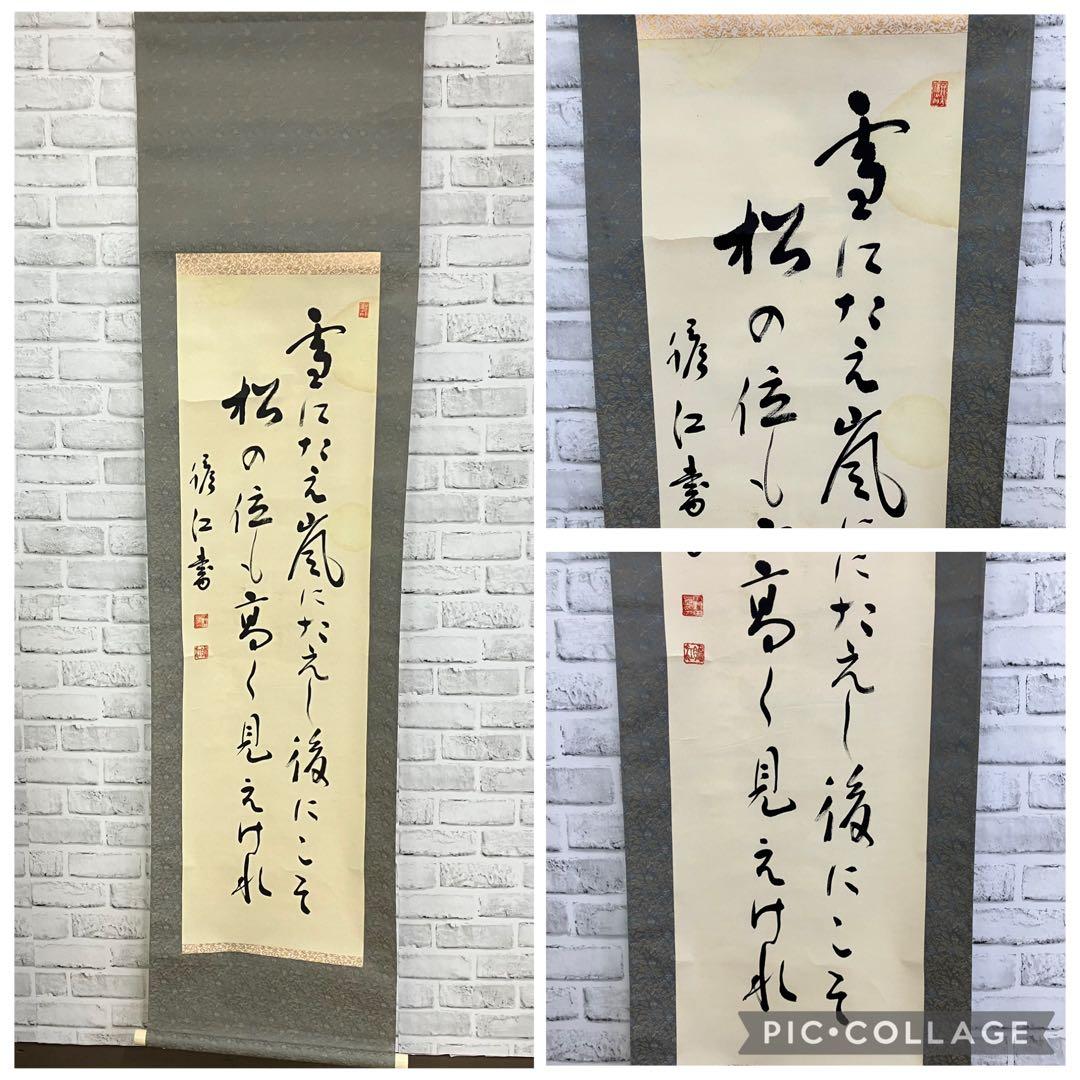 雪にたえ嵐にたえし後にこそ
松の位も高く見えけれ
雪にたえ嵐に
松の位も
にたえし後にこそ
高く見えけれ
PIC•COLLAGE